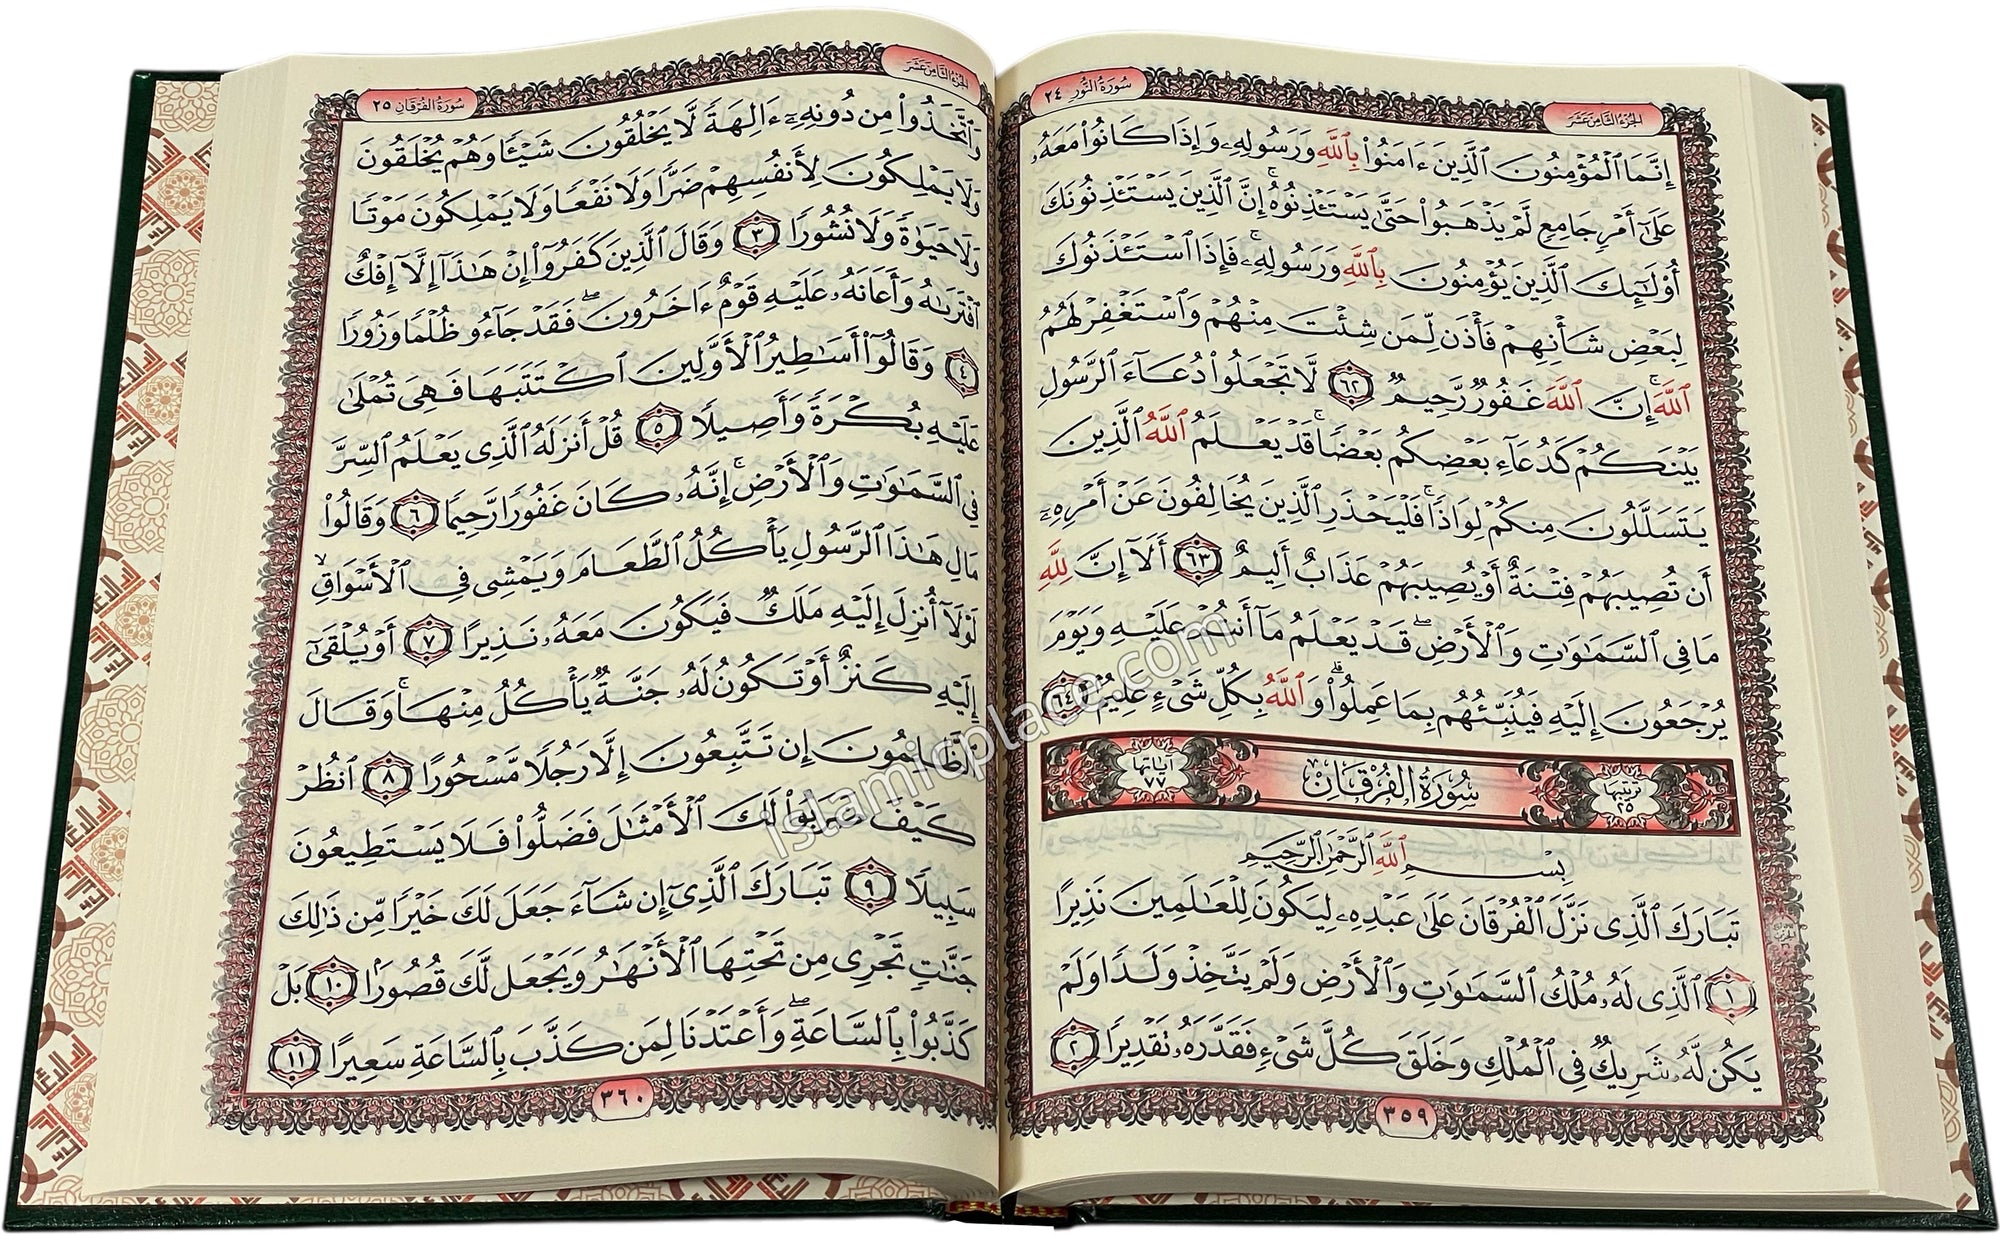 الجزء الثامن عشر
سورة النور ٢٤
إِنَّمَا ٱلْمُؤْمِنُونَ ٱلَّذِينَ ءَامَنُوا۟ بِٱللَّهِ وَرَسُولِهِۦ وَإِذَا كَانُوا۟ مَعَهُۥ
عَلَىٰٓ أَمْرٍ جَامِعٍ لَّمْ يَذْهَبُوا۟ حَتَّىٰ يَسْتَـْٔذِنُوهُ ۚ إِنَّ ٱلَّذِينَ يَسْتَـْٔذِنُونَكَ
أُو۟لَـٰٓئِكَ ٱلَّذِينَ يُؤْمِنُونَ بِٱللَّهِ وَرَسُولِهِۦ ۚ فَإِذَا ٱسْتَـْٔذَنُوكَ
لِبَعْضِ شَأْنِهِمْ فَأْذَن لِّمَن شِئْتَ مِنْهُمْ وَٱسْتَغْفِرْ لَهُمُ
ٱللَّهَ ۚ إِنَّ ٱللَّهَ غَفُورٌ رَّحِيمٌ ٦٢ لَّا تَجْعَلُوا۟ دُعَآءَ ٱلرَّسُولِ
بَيْنَكُمْ كَدُعَآءِ بَعْضِكُم بَعْضًا ۚ قَدْ يَعْلَمُ ٱللَّهُ ٱلَّذِينَ
يَتَسَلَّلُونَ مِنكُمْ لِوَاذًا ۚ فَلْيَحْذَرِ ٱلَّذِينَ يُخَالِفُونَ عَنْ أَمْرِهِۦٓ
أَن تُصِيبَهُمْ فِتْنَةٌ أَوْ يُصِيبَهُمْ عَذَابٌ أَلِيمٌ ٦٣ أَلَآ إِنَّ لِلَّهِ
مَا فِى ٱلسَّمَـٰوَٰتِ وَٱلْأَرْضِ ۖ قَدْ يَعْلَمُ مَآ أَنتُمْ عَلَيْهِ وَيَوْمَ
يُرْجَعُونَ إِلَيْهِ فَيُنَبِّئُهُم بِمَا عَمِلُوا۟ ۗ وَٱللَّهُ بِكُلِّ شَىْءٍ عَلِيمٌ ٦٤
ترتيبها ٢٥ سُورَةُ الفُرْقَانِ آياتها ٧٧
بِسْمِ ٱللَّهِ ٱلرَّحْمَـٰنِ ٱلرَّحِيمِ
تَبَارَكَ ٱلَّذِى نَزَّلَ ٱلْفُرْقَانَ عَلَىٰ عَبْدِهِۦ لِيَكُونَ لِلْعَـٰلَمِينَ نَذِيرًا
١ ٱلَّذِى لَهُۥ مُلْكُ ٱلسَّمَـٰوَٰتِ وَٱلْأَرْضِ وَلَمْ يَتَّخِذْ وَلَدًا وَلَمْ
يَكُن لَّهُۥ شَرِيكٌ فِى ٱلْمُلْكِ وَخَلَقَ كُلَّ شَىْءٍ فَقَدَّرَهُۥ تَقْدِيرًا ٢
٣٥٩
الجزء الثامن عشر
سورة الفرقان ٢٥
وَٱتَّخَذُوا۟ مِن دُونِهِۦٓ ءَالِهَةً لَّا يَخْلُقُونَ شَيْـًٔا وَهُمْ يُخْلَقُونَ
وَلَا يَمْلِكُونَ لِأَنفُسِهِمْ ضَرًّا وَلَا نَفْعًا وَلَا يَمْلِكُونَ مَوْتًا
وَلَا حَيَوٰةً وَلَا نُشُورًا ٣ وَقَالَ ٱلَّذِينَ كَفَرُوٓا۟ إِنْ هَـٰذَآ إِلَّآ إِفْكٌ
ٱفْتَرَىٰهُ وَأَعَانَهُۥ عَلَيْهِ قَوْمٌ ءَاخَرُونَ ۖ فَقَدْ جَآءُو ظُلْمًا وَزُورًا
٤ وَقَالُوٓا۟ أَسَـٰطِيرُ ٱلْأَوَّلِينَ ٱكْتَتَبَهَا فَهِىَ تُمْلَىٰ
عَلَيْهِ بُكْرَةً وَأَصِيلًا ٥ قُلْ أَنزَلَهُ ٱلَّذِى يَعْلَمُ ٱلسِّرَّ
فِى ٱلسَّمَـٰوَٰتِ وَٱلْأَرْضِ ۚ إِنَّهُۥ كَانَ غَفُورًا رَّحِيمًا ٦ وَقَالُوا۟
مَالِ هَـٰذَا ٱلرَّسُولِ يَأْكُلُ ٱلطَّعَامَ وَيَمْشِى فِى ٱلْأَسْوَاقِ ۙ
لَوْلَآ أُنزِلَ إِلَيْهِ مَلَكٌ فَيَكُونَ مَعَهُۥ نَذِيرًا ٧ أَوْ يُلْقَىٰٓ
إِلَيْهِ كَنزٌ أَوْ تَكُونُ لَهُۥ جَنَّةٌ يَأْكُلُ مِنْهَا ۚ وَقَالَ
ٱلظَّـٰلِمُونَ إِن تَتَّبِعُونَ إِلَّا رَجُلًا مَّسْحُورًا ٨ ٱنظُرْ
كَيْفَ ضَرَبُوا۟ لَكَ ٱلْأَمْثَـٰلَ فَضَلُّوا۟ فَلَا يَسْتَطِيعُونَ
سَبِيلًا ٩ تَبَارَكَ ٱلَّذِىٓ إِن شَآءَ جَعَلَ لَكَ خَيْرًا مِّن ذَٰلِكَ
جَنَّـٰتٍ تَجْرِى مِن تَحْتِهَا ٱلْأَنْهَـٰرُ وَيَجْعَل لَّكَ قُصُورًۢا ١٠ بَلْ
كَذَّبُوا۟ بِٱلسَّاعَةِ ۖ وَأَعْتَدْنَا لِمَن كَذَّبَ بِٱلسَّاعَةِ سَعِيرًا ١١
٣٦٠
Islamicplace.com